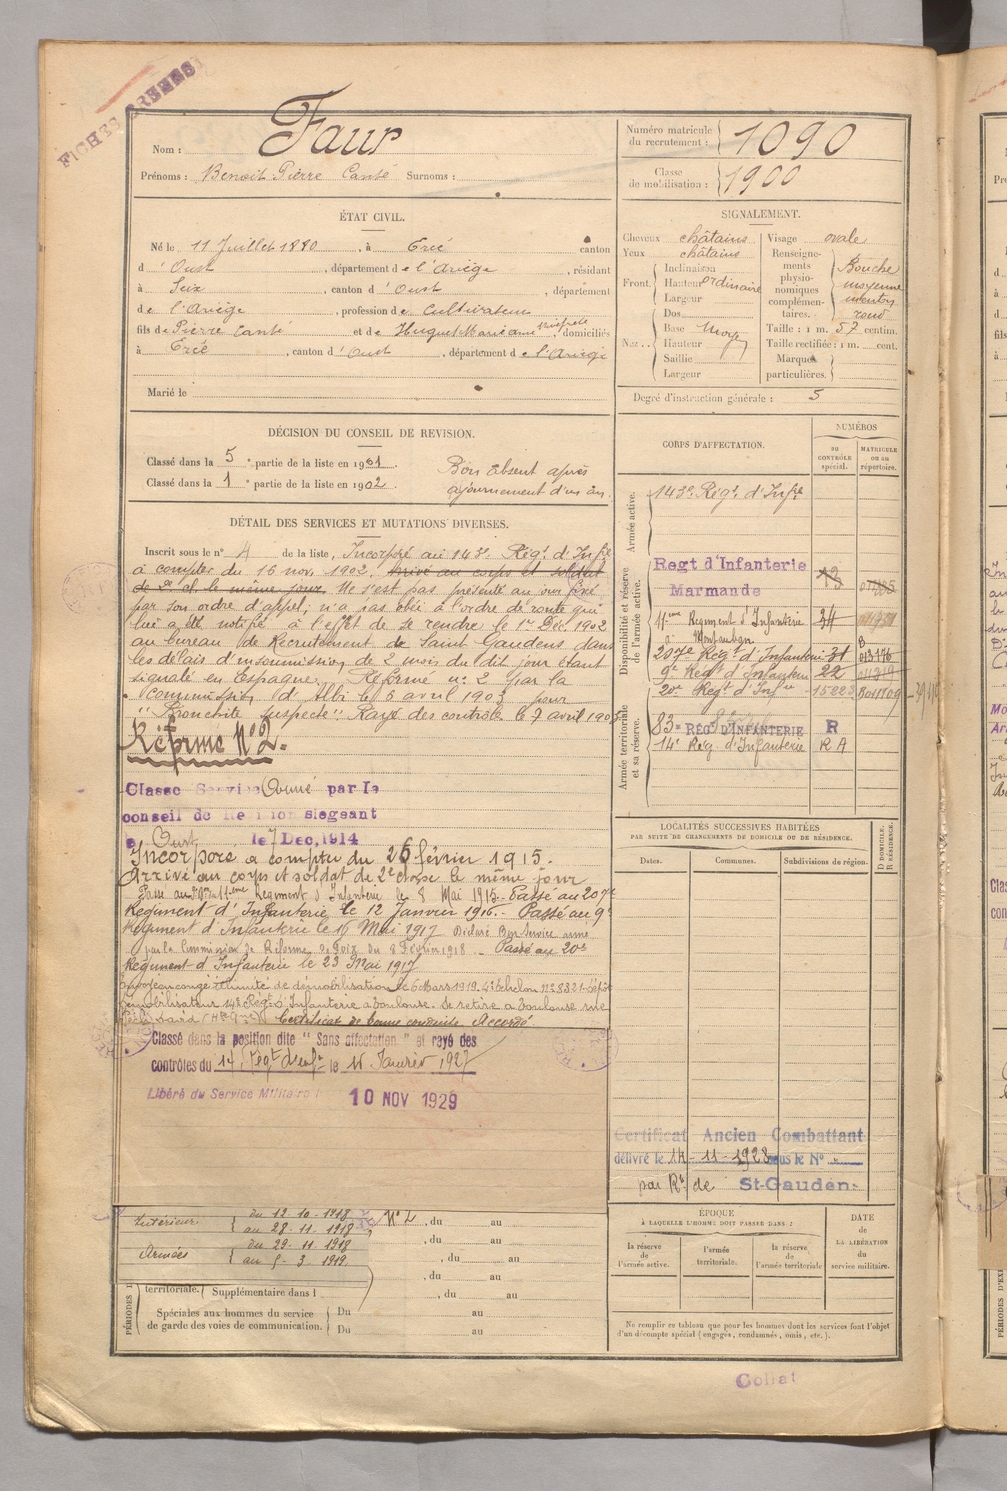 FICHES CRÉÉES
Nom : Faur
Prénoms : Benoit Pierre Canté Surnoms :
Numéro matricule du recrutement : 1090
Classe de mobilisation : 1900
ÉTAT CIVIL.
Né le 11 Juillet 1880, à Ercé canton
d'Oust, département de l'Ariège, résidant
à Seix, canton d'Oust, département
de l'Ariège, profession de Cultivateur
fils de Pierre Canté et de Huguet Marianne domiciliés
à Ercé, canton d'Oust, département de l'Ariège
Marié le
SIGNALEMENT.
Cheveux châtains
Yeux châtains
Front. Inclinaison
Hauteur ordinaire
Largeur
Nez.. Dos
Base moy
Hauteur
Saillie
Largeur
Visage ovale
Renseignements physionomiques complémentaires. Bouche moyenne menton rond
Taille : 1 m. 57 centim.
Taille rectifiée : 1 m. cent.
Marques particulières.
Degré d'instruction générale : 5
DÉCISION DU CONSEIL DE REVISION.
Classé dans la 5e partie de la liste en 1901.
Classé dans la 1e partie de la liste en 1902.
Bon absent après
ajournement d'un an.
DÉTAIL DES SERVICES ET MUTATIONS DIVERSES.
Inscrit sous le n° 4 de la liste, Incorporé au 143e Régt d'Infie
à compter du 16 nov. 1902. Arrivé au corps et soldat
de 2e cl. le même jour. Ne s'est pas présenté au jour fixé
par son ordre d'appel; n'a pas obéi à l'ordre de route qui
lui a été notifié à l'effet de se rendre le 1er Déc. 1902
au bureau de Recrutement de Saint Gaudens dans
les délais d'insoumission de 2 mois du dit jour étant
signalé en Espagne. Réformé n° 2 par la
Commission d'Albi le 6 avril 1903 pour
"Bronchite suspecte". Rayé des contrôles le 7 avril 1903
Réforme N° 2.
Classé Service Armé par le
conseil de Révision siégeant
à Oust le 7 Dec, 1914
Incorporé à compter du 26 février 1915.
Arrivé au corps et soldat de 2e classe le même jour
Passé au 11eme Régiment d'Infanterie le 8 Mai 1915. Passé au 207e
Régiment d'Infanterie le 12 janvier 1916. Passé au 9e
Régiment d'Infanterie le 16 Mai 1917 Déclaré Bon Service armé
par la Commission de Réforme de Foix du 8 Février 1918. Passé au 20e
Régiment d'Infanterie le 23 Mai 191
congé illimité de démobilisation le 6 Mars 1919. 4e échelon N° 38321. Dépôt
démobilisateur 14e Régt d'Infanterie à Toulouse. Se retire à Toulouse rue
Certificat de bonne conduite Accordé
Classé dans la position dite "Sans affectation" et rayé des
contrôles du 14e Régt d'Infie le 15 Janvier 1927
Libéré du Service Militaire le 10 NOV 1929
CORPS D'AFFECTATION.
NUMÉROS
DU CONTRÔLE spécial.
MATRICULE OU AU répertoire.
Armée active.
143e Régt d'Infie
Disponibilité et réserve de l'armée active.
Regt d'Infanterie
Marmande
11eme Régiment d'Infanterie 34
à Montauban
207e Régt d'Infanterie 31 B 013176
9e Régt d'Infanterie 22 011319
20e Régt d'Infie 15223
Armée territoriale et sa réserve.
83e RÉGt D'INFANTERIE R
14e Rég. d'Infanterie R A
LOCALITÉS SUCCESSIVES HABITÉES
PAR SUITE DE CHANGEMENTS DE DOMICILE OU DE RÉSIDENCE.
Dates. Communes. Subdivisions de région. D DOMICILE. R RÉSIDENCE.
Certificat Ancien Combattant
délivré le 14-11-1928 sous le N°
par Rt de St-Gaudens
Intérieur du 12-10-1918
au 28-11-1918
Armées du 29-11-1918
au 5-3-1919
N° 2, du au
, du au
, du au
, du au
territoriale. Supplémentaire dans l , du au
Spéciales aux hommes du service de garde des voies de communication. Du au
Du au
ÉPOQUE
À LAQUELLE L'HOMME DOIT PASSER DANS :
la réserve de l'armée active.
l'armée territoriale.
la réserve de l'armée territoriale
DATE de LA LIBÉRATION du service militaire.
Ne remplir ce tableau que pour les hommes dont les services font l'objet
d'un décompte spécial (engagés, condamnés, omis, etc.).